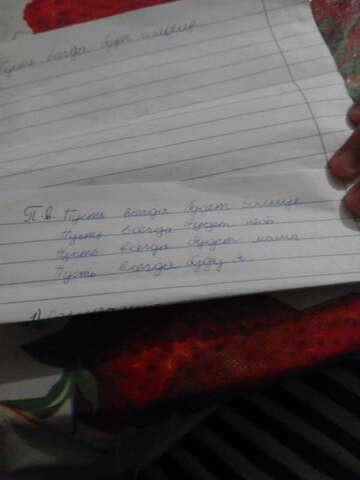 Пусть всегда будет солнце
П.в. Пусть всегда будет солнце
Пусть всегда будет небо
Пусть всегда будет мама
Пусть всегда буду я